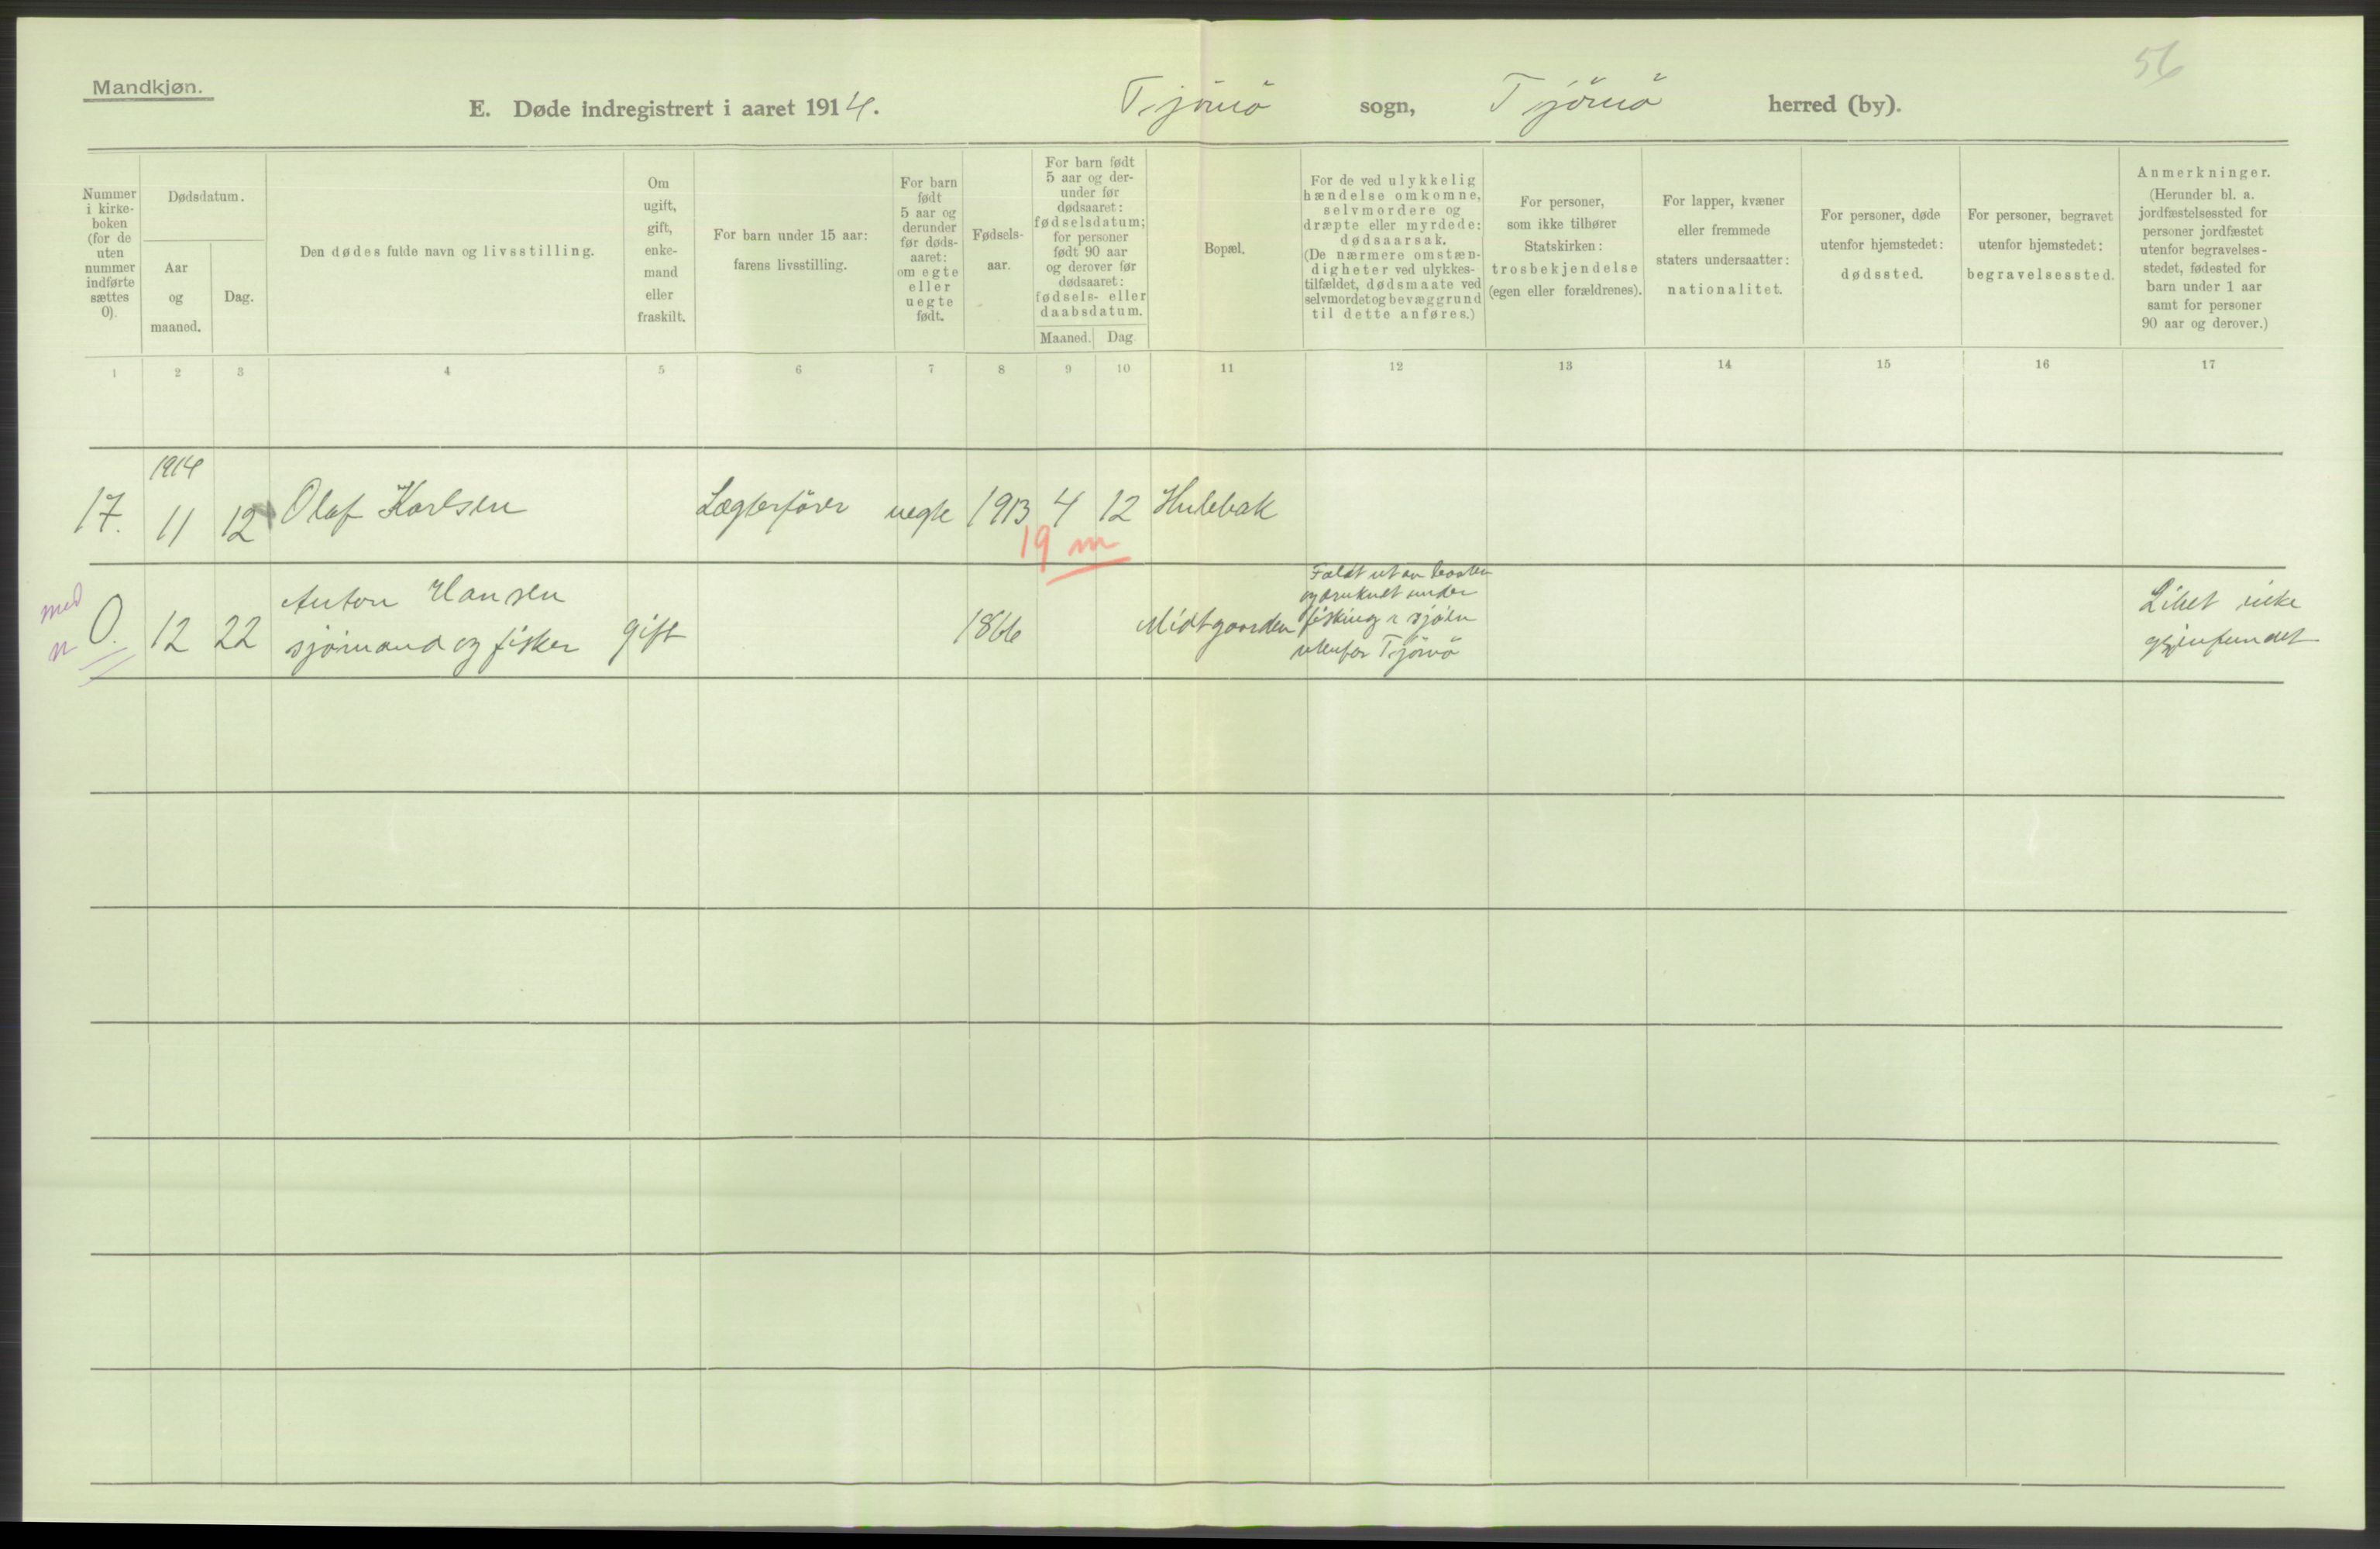 56
Mandkjøn.
E. Døde indregistrert i aaret 1914. Tjømø sogn, Tjømø herred (by).
Nummer
i kirke-
boken
(for de
uten
nummer
indførte
sættes
0).
Dødsdatum.
Aar
og
maaned.
Dag.
Den dødes fulde navn og livsstilling.
Om
ugift,
gift,
enke-
mand
eller
fraskilt.
For barn under 15 aar:
farens livsstilling.
For barn
født
5 aar og
derunder
før døds-
aaret:
om egte
eller
uegte
født.
Fødsels-
aar.
For barn født
5 aar og der-
under før
dødsaaret:
fødselsdatum;
for personer
født 90 aar
og derover før
dødsaaret:
fødsels- eller
daabsdatum.
Maaned. Dag
Bopæl.
For de ved ulykkelig
hændelse omkomne,
selvmordere og
dræpte eller myrdede:
dødsaarsak.
(De nærmere omstæn-
digheter ved ulykkes-
tilfældet, dødsmaate ved
selvmordet og bevæggrund
til dette anføres.)
For personer,
som ikke tilhører
Statskirken:
trosbekjendelse
(egen eller forældrenes).
For lapper, kvæner
eller fremmede
staters undersaatter:
nationalitet.
For personer, døde
utenfor hjemstedet:
dødssted.
For personer, begravet
utenfor hjemstedet:
begravelsessted.
Anmerkninger.
(Herunder bl. a.
jordfæstelsessted for
personer jordfæstet
utenfor begravelses-
stedet, fødested for
barn under 1 aar
samt for personer
90 aar og derover.)
1 2 3 4 5 6 7 8 9 10 11 12 13 14 15 16 17
1914
17. 11 12 Olaf Karlsen Lægterförer uegte 1913 4 12 Hulebak
19 m
med
n
0. 12 22 Anton Hansen
sjömand og fisker gift 1866 Midtgaarden
Faldt ut av baaten
og druknet under
fisking i sjöen
utenfor Tjömö
Liket ikke
gjenfundet